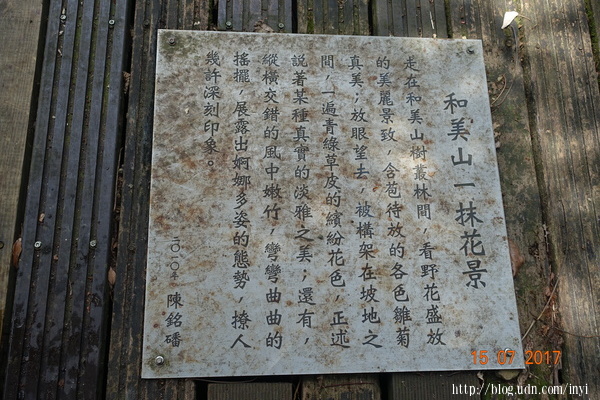 和美山一抹花景
走在和美山樹叢林間，看野花盛放
的美麗景致，含苞待放的各色雛菊
真美；放眼望去，被構架在坡地之
間，一遍青綠草皮的繽紛花色，正述
說著某種真實的淡雅之美；還有，
縱橫交錯的風中嫩竹，彎彎曲曲的
搖擺，展露出婀娜多姿的態勢，撩人
幾許深刻印象。
二〇一〇年 陳銘磻
15 07 2017
http://blog.udn.com/inyi